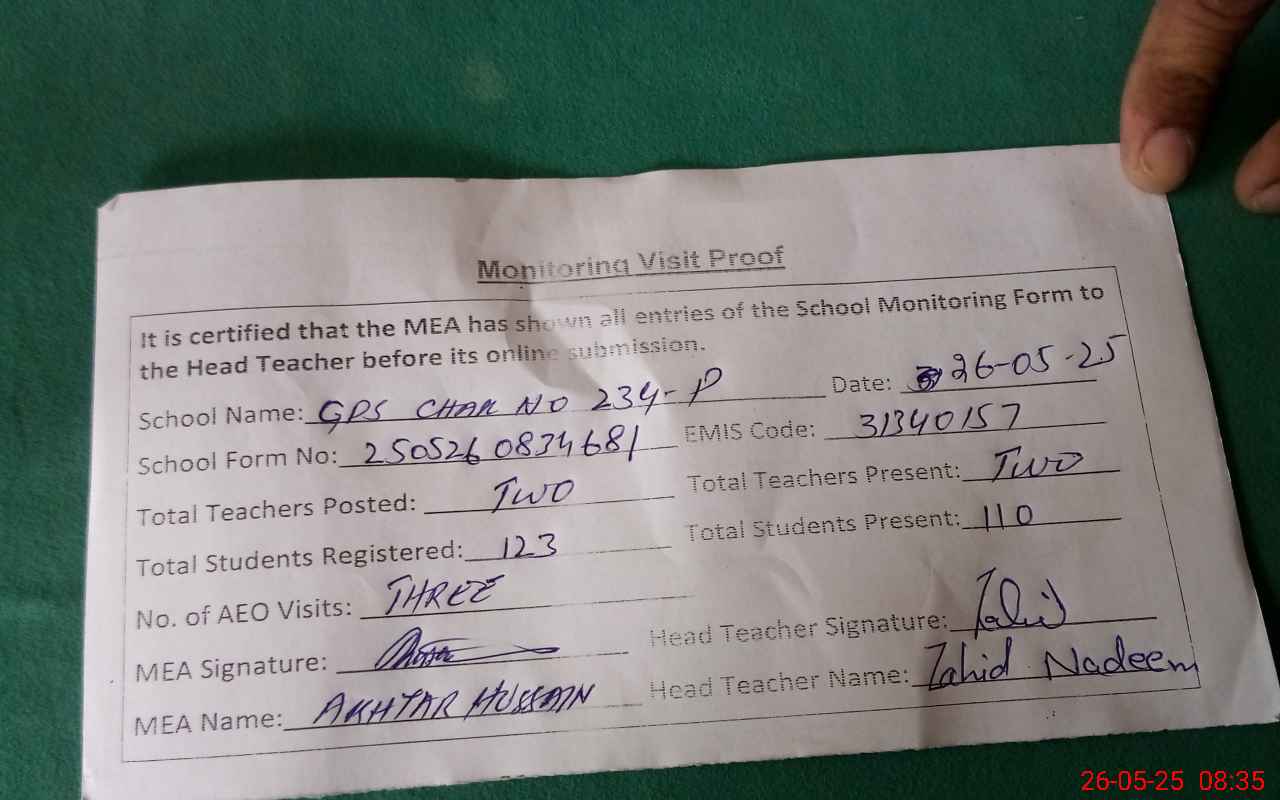 Monitoring Visit Proof
It is certified that the MEA has shown all entries of the School Monitoring Form to
the Head Teacher before its online submission.
School Name: GPS CHAK NO 234-P Date: 26-05-25
School Form No: 2505260834681 EMIS Code: 31340157
Total Teachers Posted: TWO Total Teachers Present: TWO
Total Students Registered: 123 Total Students Present: 110
No. of AEO Visits: THREE
MEA Signature: Head Teacher Signature: Zahid
MEA Name: AKHTAR HUSSAIN Head Teacher Name: Zahid Nadeem
26-05-25 08:35